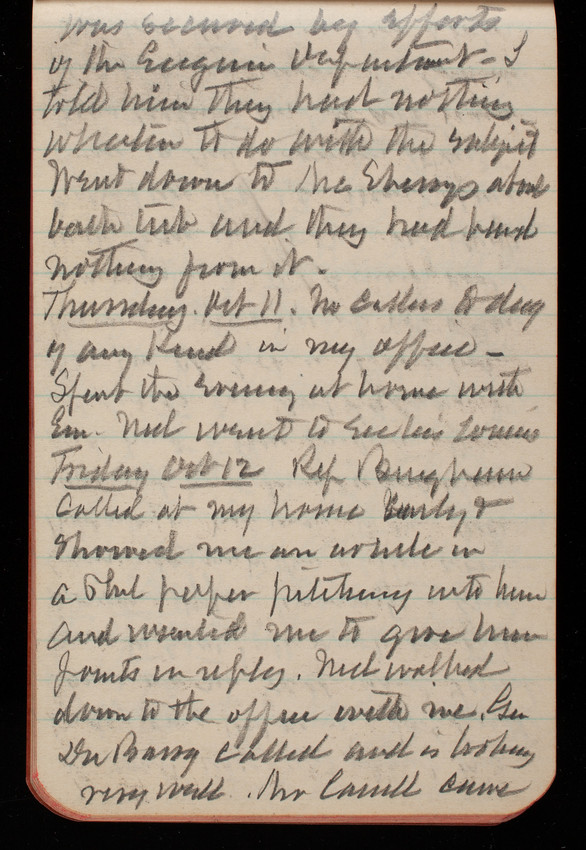 was secured by efforts
of the Engin Department - I
told him they had nothing
whatever to do with the subject
Went down to the Ebensys about
bath tub and they had heard
nothing from it.
Thursday Oct 11. No callers today
of any kind in my office -
Spent the evening at home with
Em. Ned went to see his
Friday Oct 12 Rep Bingham
called at my home early &
showed me an article in
a Phil paper pitching into him
and wanted me to give him
points in reply. Ned walked
down to the office with me. Gen
Du Barry called and is looking
very well. Mr Carell came